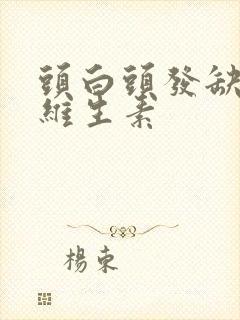 頭白頭發缺
維生素
楊束